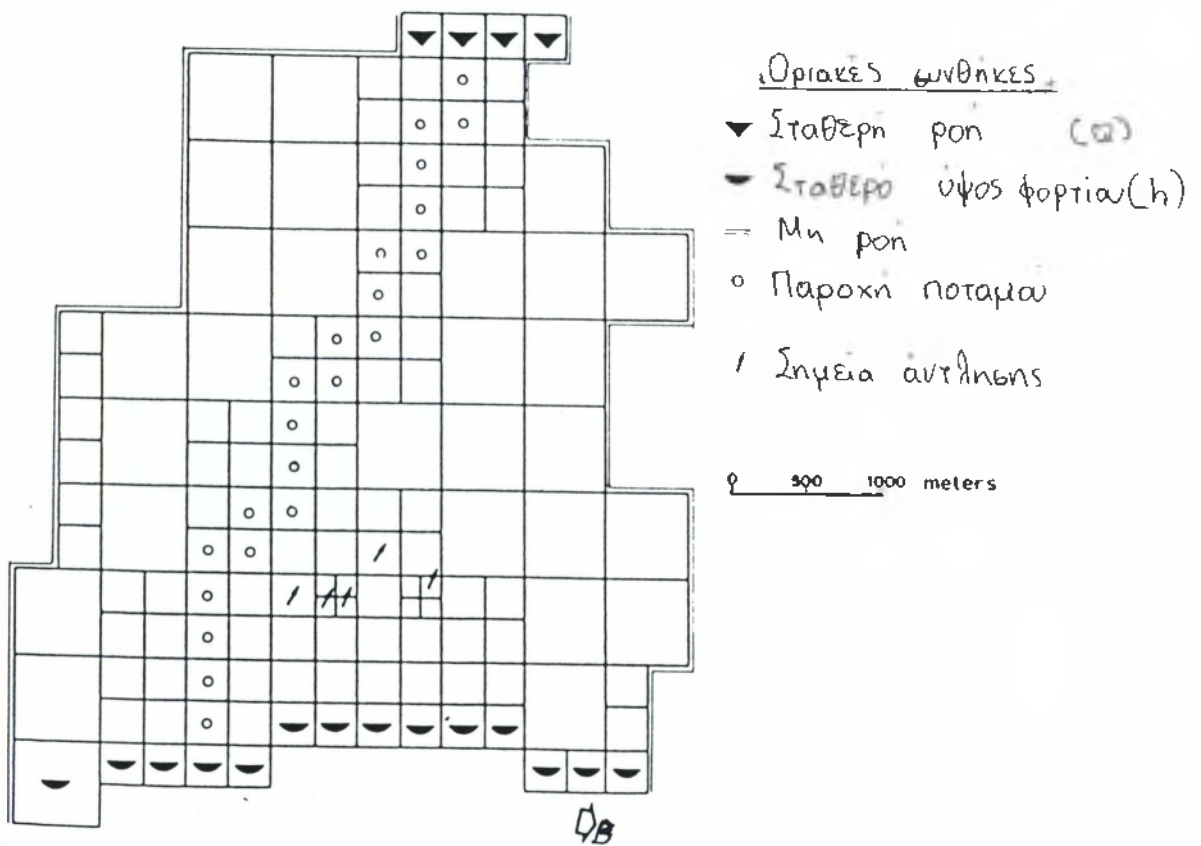 Οριακές συνθήκες
Σταθερή ροή (Q)
Σταθερό ύψος φορτίου (h)
Μη ροή
Παροχή ποταμού
Σημεία άντλησης
0 500 1000 meters
B